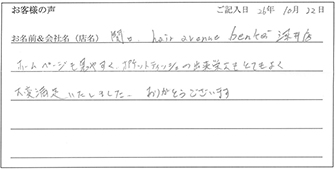 お客様の声 ご記入日 26年 10月 22日
お名前&会社名(店名) 関口 hair avenue benkei 深井店
ホームページも見やすく、ポケットティッシュの出来栄えもとてもよく
大変満足いたしました。ありがとうございます